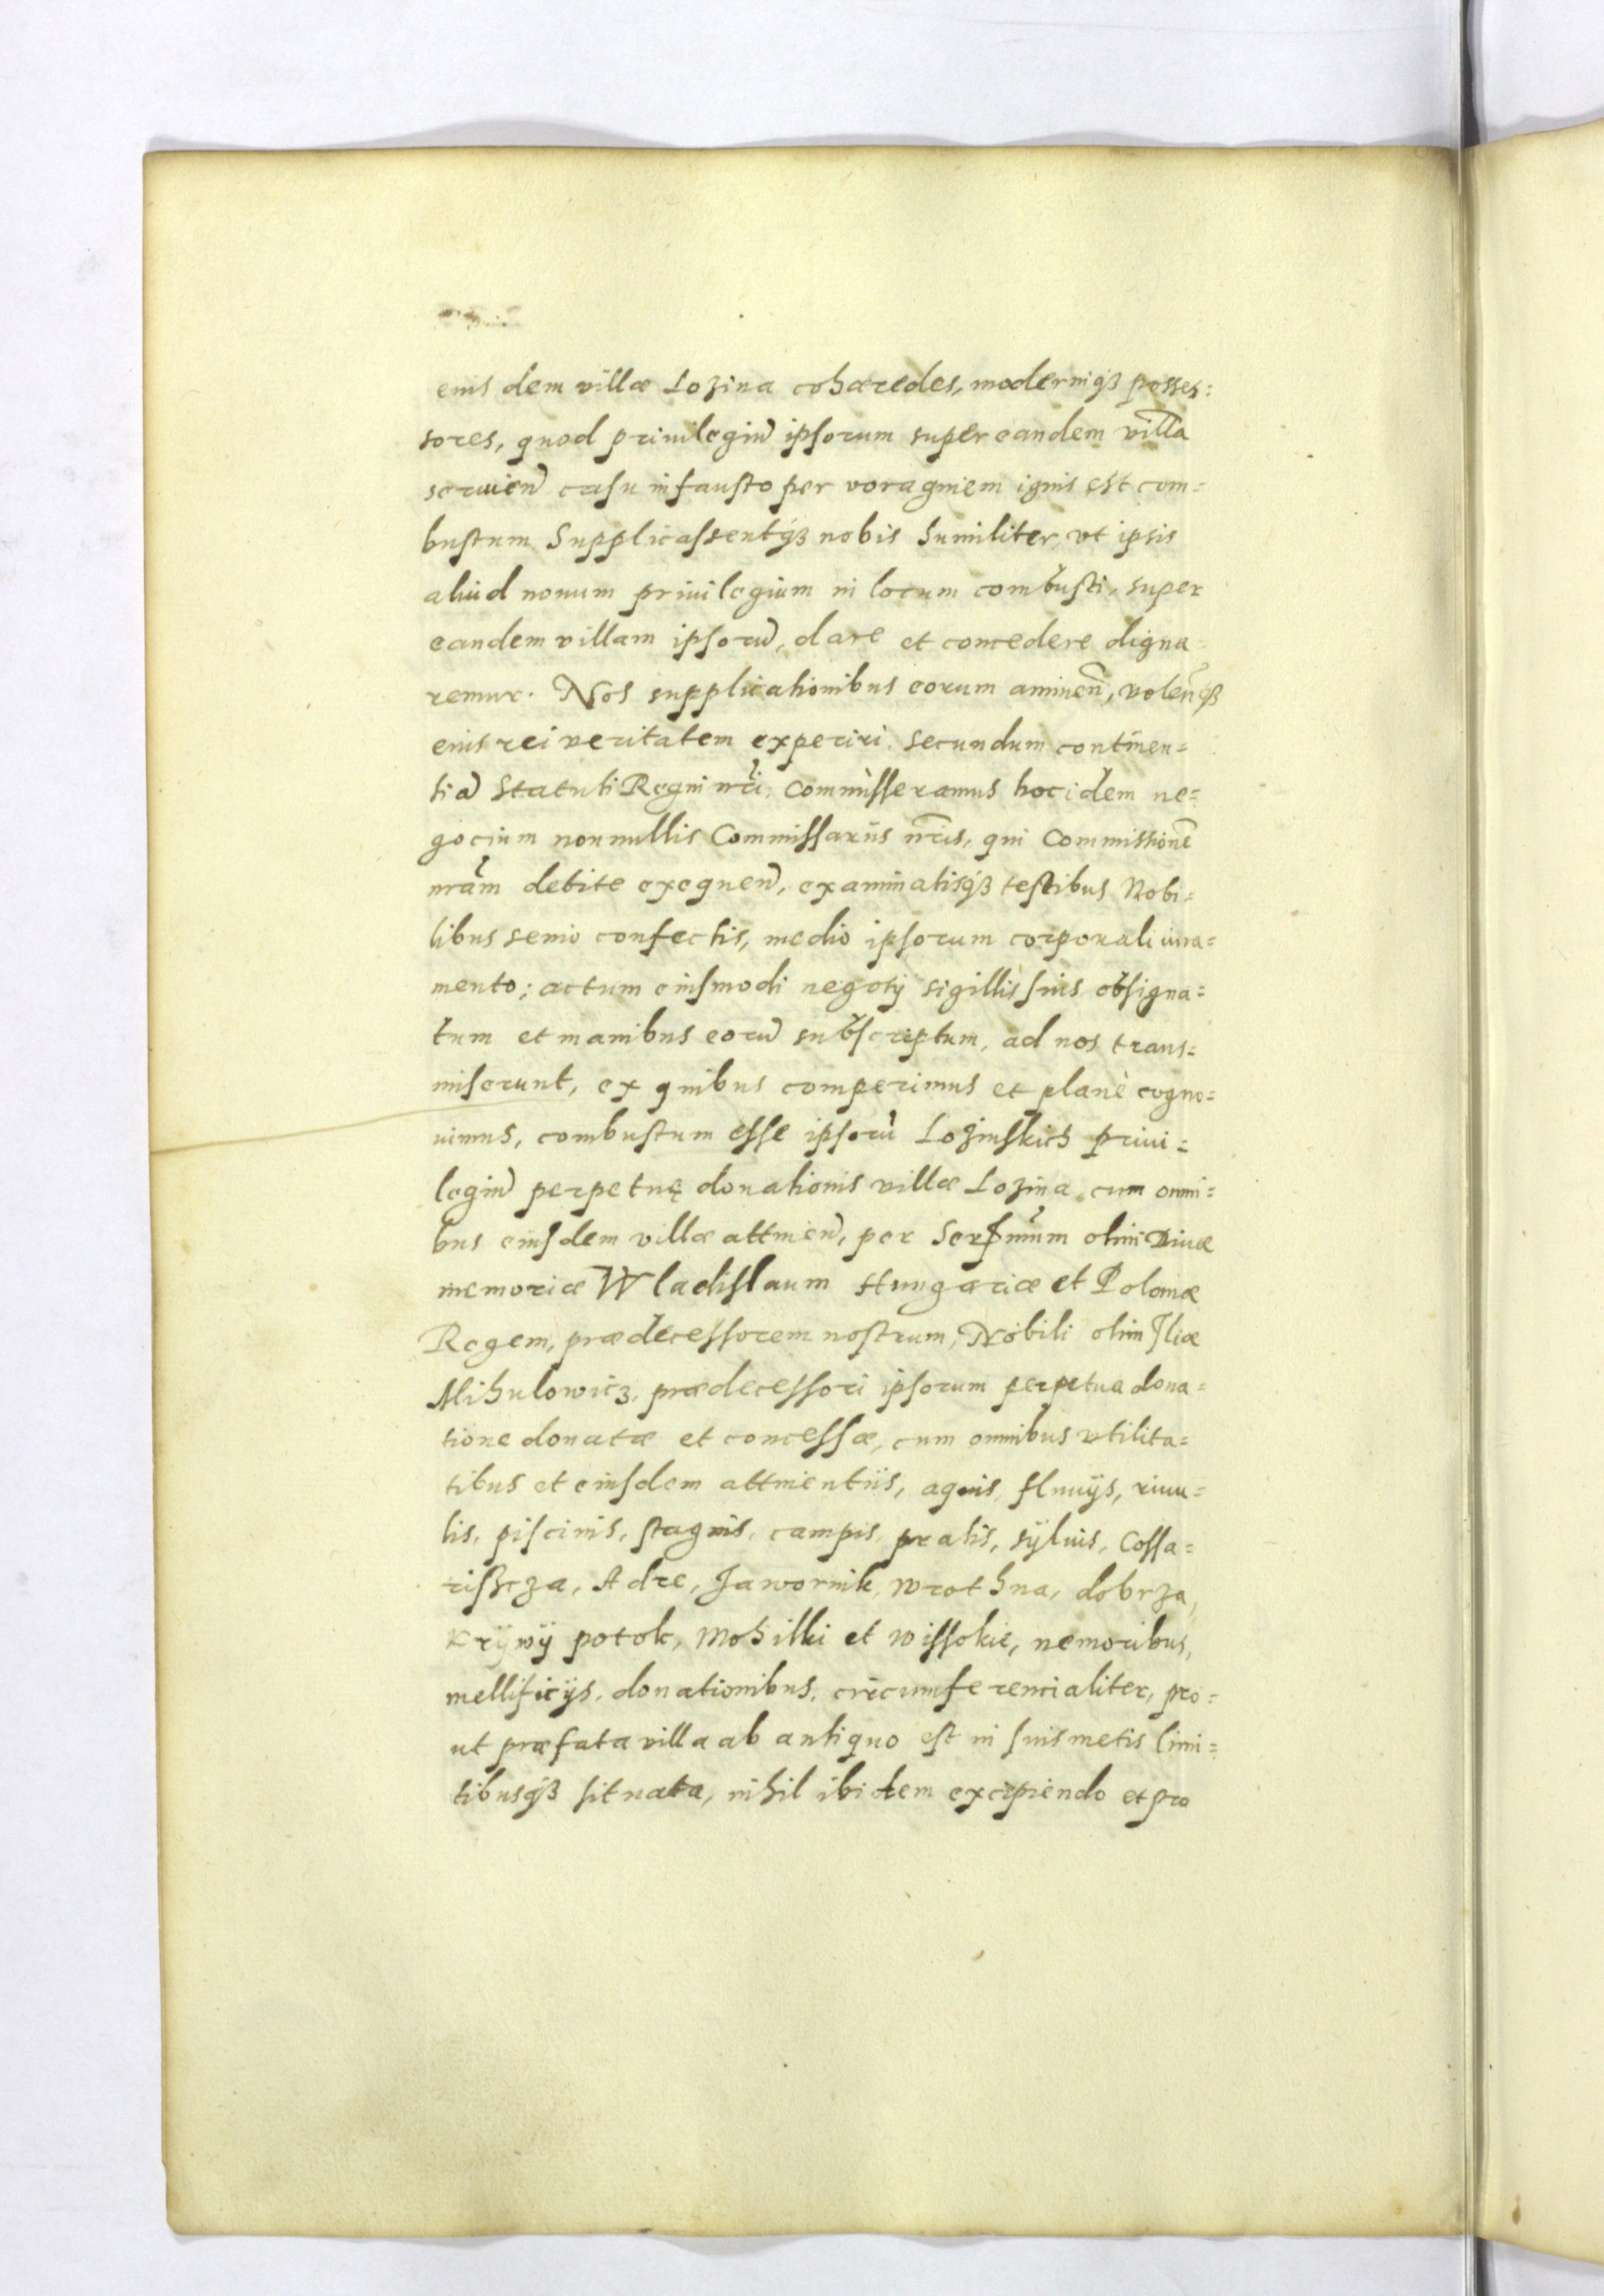 eius dem villæ Lozina cohæredes, moderniq́ꝫ posses=
sores, quod priuilegiũ ipsorum super eandem villã
seruien̄ casu infausto per voraginem ignis est com=
bustum Supplicassentq́ꝫ nobis humiliter, vt ipsis
aliud nouum priuilegium in locum combusti, super
eandem villam ipsorũ, dare et concedere digna=
remur. Nos supplicationibus eorum aminen̄, volen̄q́ꝫ
eius rei veritatem experiri, secundum continen=
tiã Statuti Regni nr̃i, Commisseramus hoc idem ne=
gocium nonnullis Commissariis nr̃is, qui Commissionē
nr̃am debite exequen̄, examinatisq́ꝫ testibus Nobi=
libus senio confectis, medio ipsorum corporali iura=
mento; actum eiusmodi negotij sigillis suis obsigna=
tum et manibus eorũ subscriptum, ad nos trans=
miserunt, ex quibus comperimus et planè cogno=
uimus, combustum esse ipsorũ Lozinskich priui=
legiũ perpetuę donationis villæ Lozina, cum omni=
bus eiusdem villæ attinen̄, per Ser̃mum olim Diuæ
memoriæ Wladislaum Hungariæ et Poloniæ
Regem, prædecessorem nostrum, Nobili olim Iliæ
Mihulowicz, prædecessori ipsorum perpetua dona=
tione donatæ et concessæ, cum omnibus vtilita=
tibus et eiusdem attinentiis, aquis, fluuijs, riuu=
lis, piscinis, stagnis, campis, pratis, sÿluis, Cossa=
risscza, Adre, Jawornik, wrothna, dobrza,
Krÿwÿ potok, Mohilki et wissokie, nemoribus,
mellificijs, donationibus, circumferencialiter, pro=
ut præfata villa ab antiquo est in suis metis limi=
tibusq́ꝫ situata, nihil ibidem excipiendo et pro